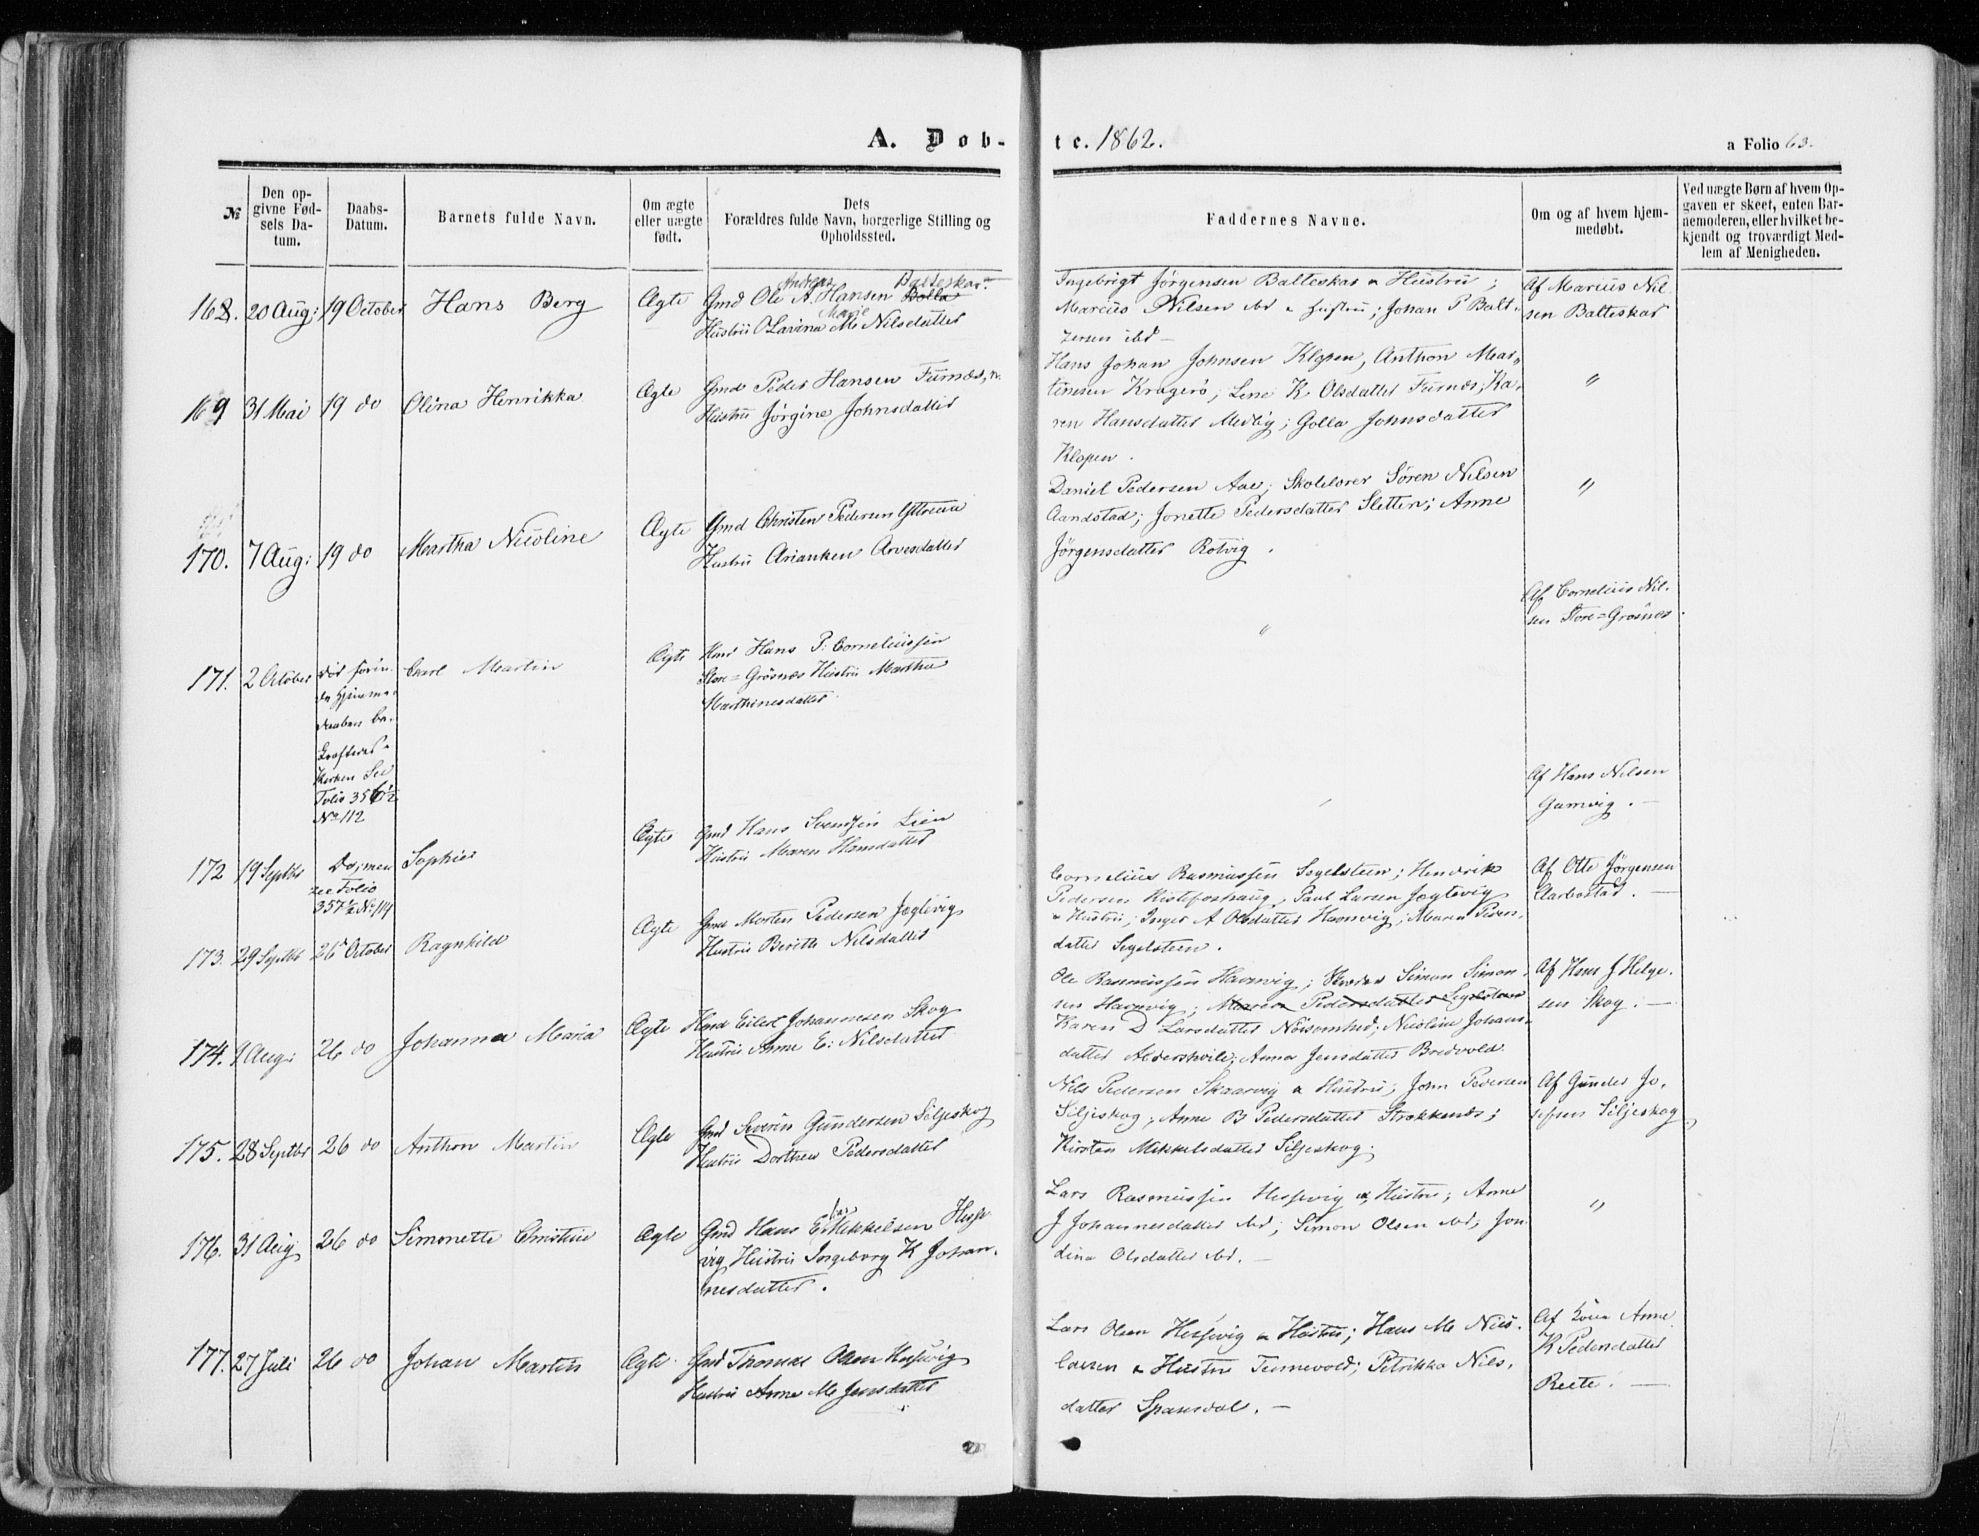 A. Døb-
te. 1862.
a Folio 63.
№
Den op-
givne Fød-
sels Da-
tum.
Daabs-
Datum.
Barnets fulde Navn.
Om ægte
eller uægte
født.
Dets
Forældres fulde Navn, borgerlige Stilling og
Opholdssted.
Faddernes Navne.
Om og af hvem hjem-
medøbt.
Ved uægte Børn af hvem Op-
gaven er skeet, enten Bar-
nemoderen, eller hvilket be-
kjendt og troværdigt Med-
lem af Menigheden.
168. 20 Aug: 19 October Hans Berg Ægte
Andreas Balteskar
Gmd Ole A. Hansen Bolla
Marie
Hustru OLavina M. Nilsdatter
Ingebrigt Jørgensen Balteskar & Hustru;
Marcus Nilsen ibd & Hustru; Johan P Balt-
zersen ibd -
Af Marius Nil
sen Balteskar
169 31 Mai 19 do Olina Henrikka Ægte
Gmd Peder Hansen Furnæs,
Hustru Jørgine Johnsdatter
Hans Johan Johnsen Klopen, Anthon Mar-
tinesen Kragerö; Lene K Olsdatter Furnæs; Ka-
ren Hansdatter Medby; Golla Johnsdatter
Klopen.
"
170. 7 Aug: 19 do Martha Nicoline Ægte
Gmd Christen Pedersen Yttreaa
Hustru Arianken Arvesdatter
Daniel Pedersen Aae; Skolelærer Søren Nilsen
Aandstad; Jonette Pedersdatter Sletten; Anne
Jørgensdatter Rotvig.
"
171. 2 October
død forin-
den Hjemme-
daaben be-
kræftedes i
Kirken See
Folio 356½
No 112
Carl Martin Ægte
Hans P: Corneliussen
Store=Grøsnes Hustru Martha
Marthinesdatter
"
Af Cornelius Nil-
sen Store=Grøsnes.
172 19 Septbr
see Folio
357½ No: 114
Sophie Ægte
Gmd Hans Svendsen Lien
Hustru Maren Hansdatter
Af Hans Nilsen
Gamvig. -
173. 29 Septbr 26 October Ragnhild Ægte
Gmd Morten Pedersen Jægtevig
Hustru Berith Nilsdatter
Cornelius Rasmussen Segelsteen; Hendrik
Pedersen Kistefoshaug, Paul Larsen Jægtevig
& Hustru; Inger A Olsdatter Havnvig; Maren Peders-
datter Segelsteen.
Af Otte Jörgensen
Aarbostad. -
174. 9 Aug: 26 do Johanna Maria Ægte
Eilert Johannesen Skog
Hustru Anne E: Nilsdatter
Ole Rasmussen Havnvig; Simon Simon-
sen Havnvig; Maren Pedersdatter Segelsteen
Karen D Larsdatter Nöisomhed; Nicoline Johans-
datter Aldershvile; Anna Jensdatter Bredvold.
Af Hans J Helge-
sen Skog. -
175. 28 Septbr 26 do Anthon Martin Ægte
Gmd Severin Gundersen Siljeskog
Hustru Dorthea Pedersdatter
Nils Pedersen Skaarvig & Hustru; John Pedersen
Siljeskog; Anne B Pedersdatter Strokkenæs;
Kirsten Mikkelsdatter Siljeskog.
Af Gunder Jo-
sefsen Siljeskog.
176. 31 Aug 26 do Simonette Christine Ægte
Gmd Hans E Mikkelsen Hesse-
vig Hustru Ingeborg K Johan-
nesdatter.
Lars Rasmussen Hessevig & Hustru; Anne
J Johannesdatter ibd; Simon Olsen ibd; Jon-
dina Olsdatter ibd. -
"
177. 27 Juli 26 do Johan Martin Ægte
Gmd Thomas Olsen Hessevig
Hustru Anne M Jensdatter
Lars Olsen Hessevig & Hustru; Hans M Nico-
laisen & Hustru Turnevold; Petrikka Nils-
datter Spansdal. -
Af Kone Anne
K Pedersdatter
Reite. -